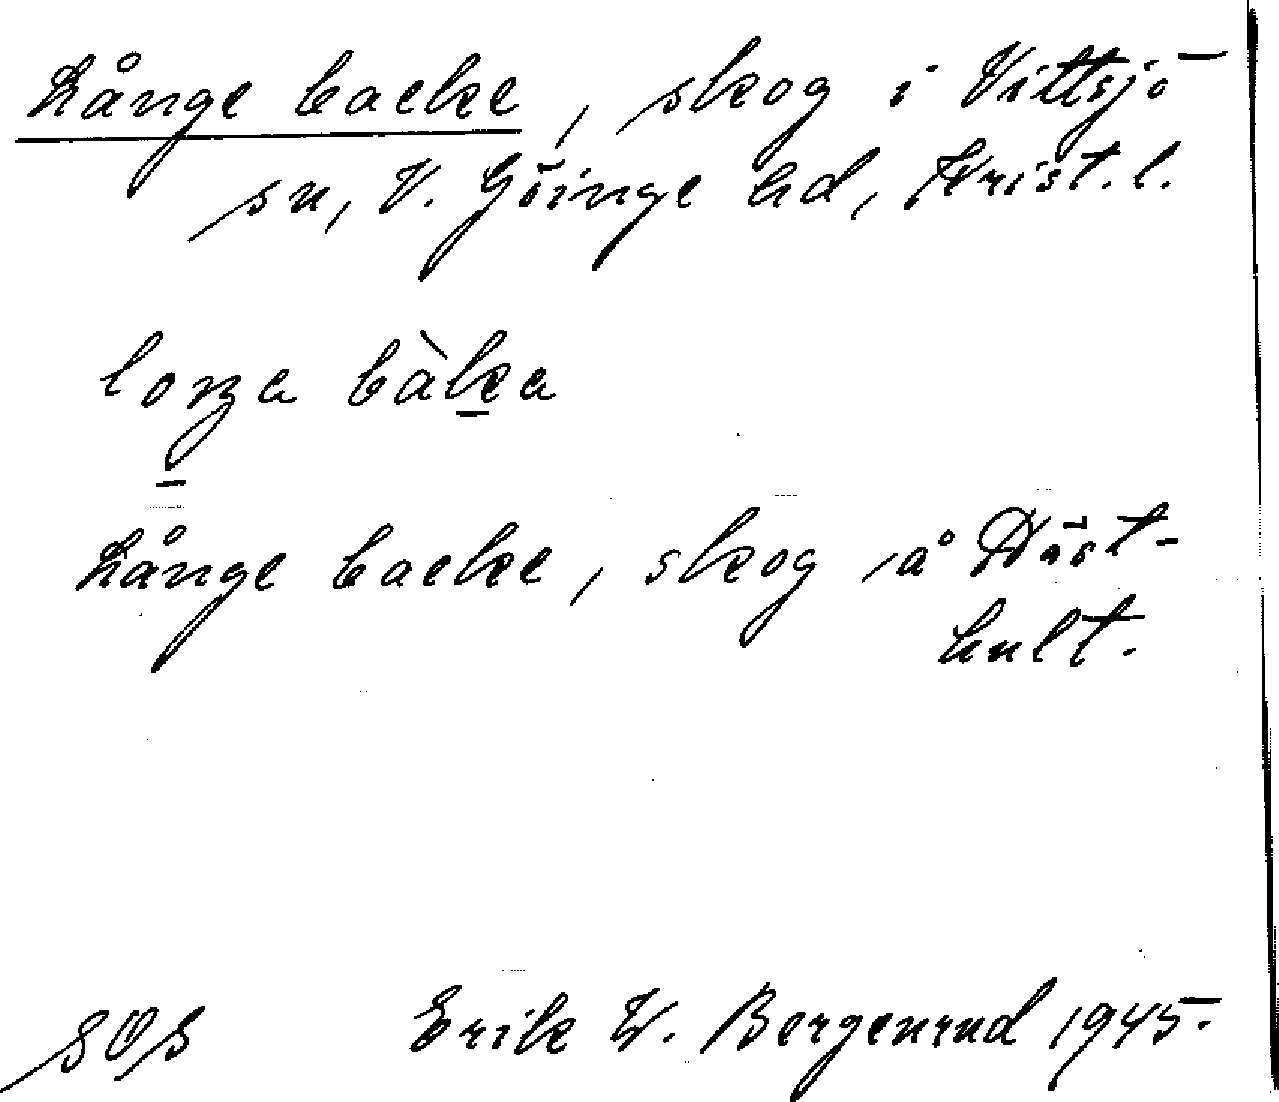 Långe backe, skog i Vittsjö
sn, V. Göinge hd, Krist. l.
longa bàka
Långe backe, skog å Häst-
hult.
SOS Erik W. Bergenrud 1945.